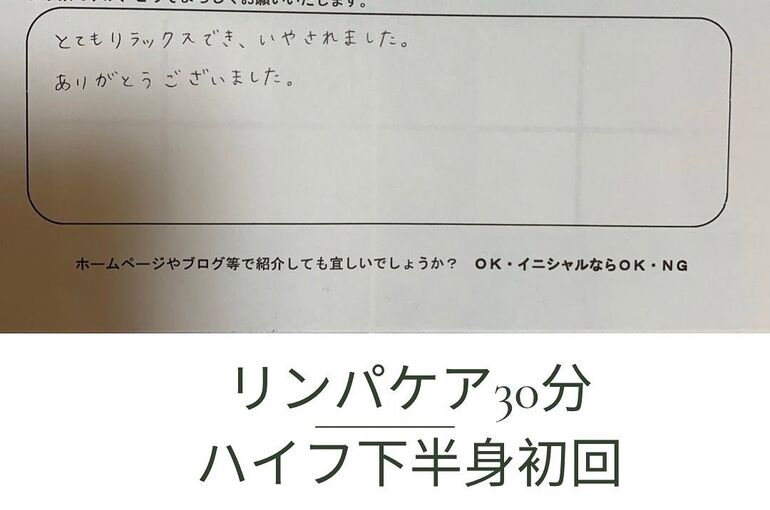 どうぞよろしくお願いいたします。
とてもリラックスでき、いやされました。
ありがとうございました。
ホームページやブログ等で紹介しても宜しいでしょうか？　ＯＫ・イニシャルならＯＫ・ＮＧ
リンパケア30分
ハイフ下半身初回